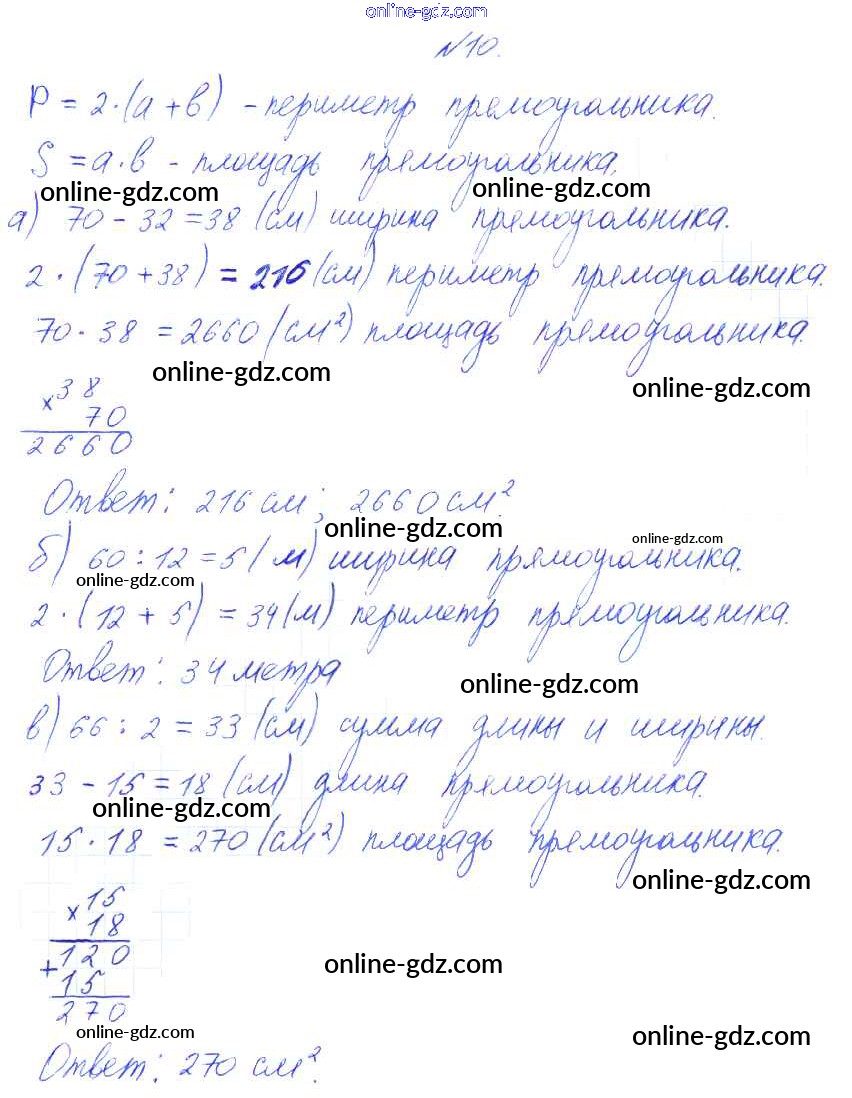 online-gdz.com
№10.
P = 2·(a + b) - периметр прямоугольника.
S = a·b - площадь прямоугольника.
online-gdz.com online-gdz.com
а) 70 - 32 = 38 (см) ширина прямоугольника.
2 · (70 + 38) = 216 (см) периметр прямоугольника.
70 · 38 = 2660 (см²) площадь прямоугольника.
online-gdz.com online-gdz.com
× 38
70
2660
Ответ: 216 см; 2660 см².
online-gdz.com online-gdz.com
б) 60 : 12 = 5 (м) ширина прямоугольника.
online-gdz.com
2 · (12 + 5) = 34 (м) периметр прямоугольника.
Ответ: 34 метра
online-gdz.com
в) 66 : 2 = 33 (см) сумма длины и ширины.
33 - 15 = 18 (см) длина прямоугольника.
online-gdz.com
15 · 18 = 270 (см²) площадь прямоугольника.
online-gdz.com
× 15
18
+ 120
15
270
online-gdz.com
online-gdz.com online-gdz.com
Ответ: 270 см².